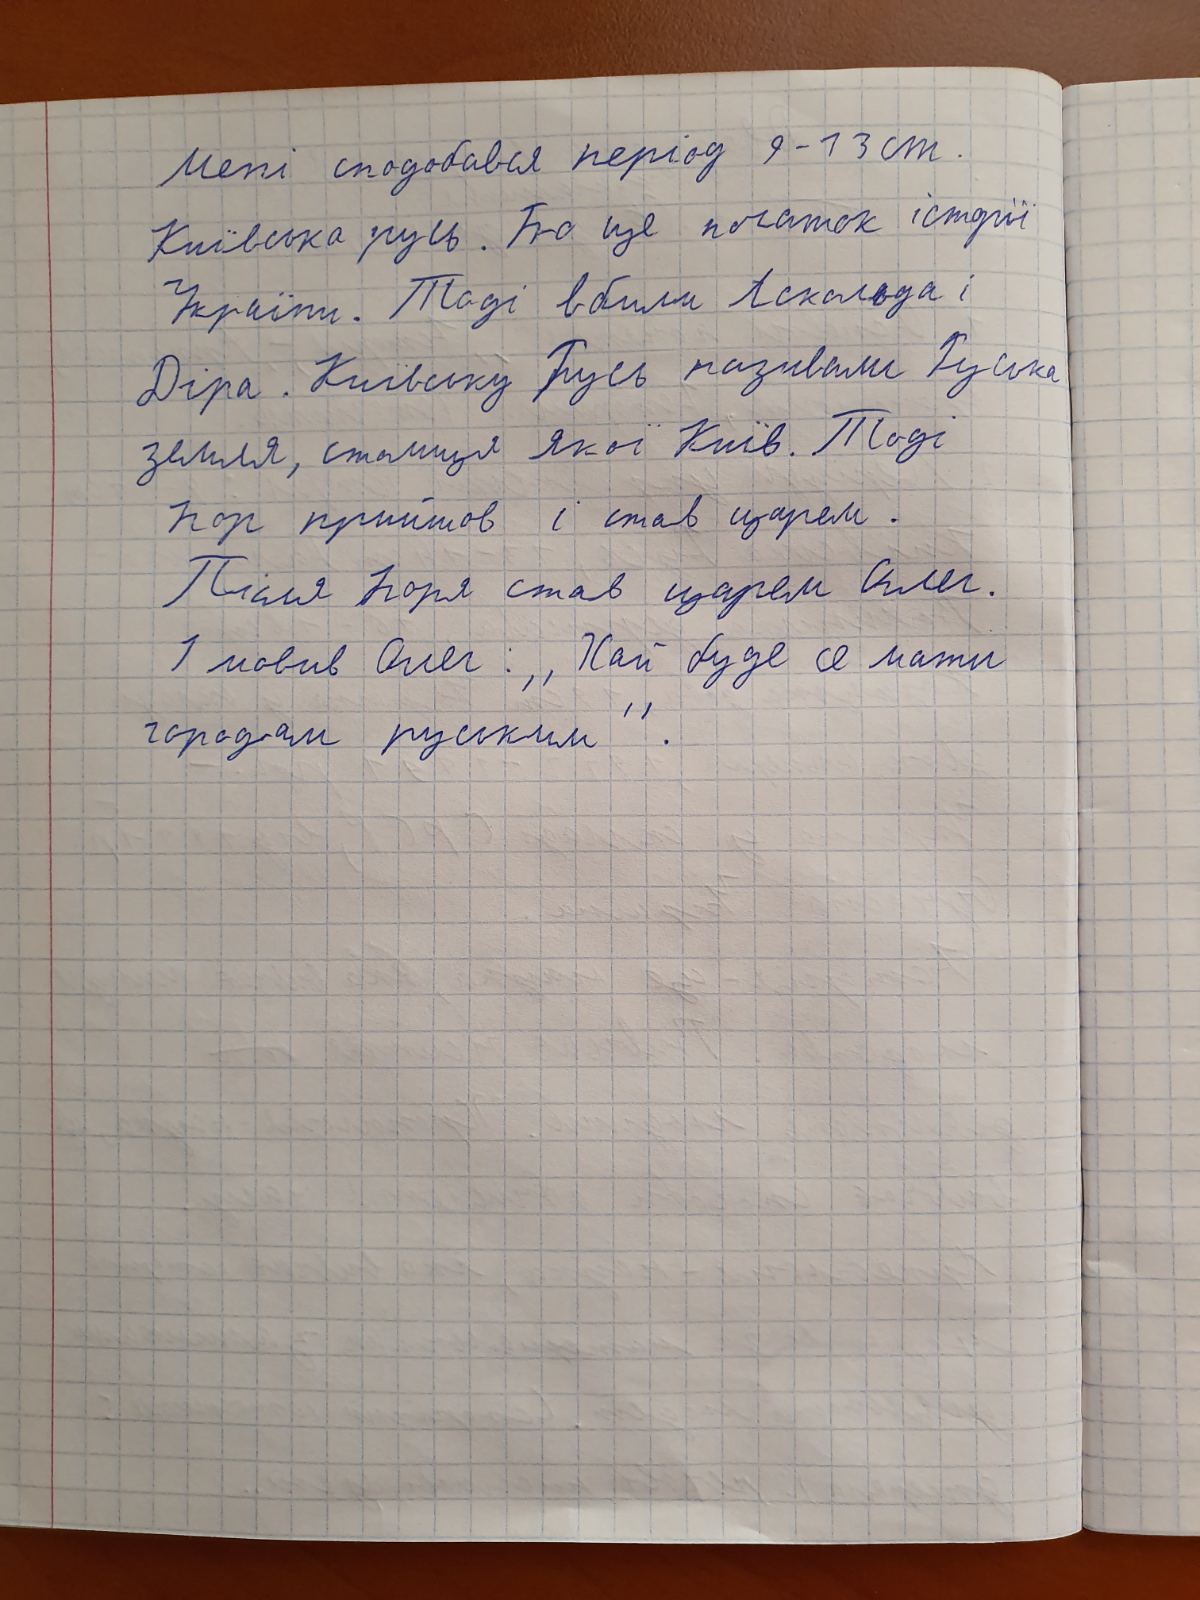 Мені сподобався період 9-13 ст.
Київська русь. Бо це початок історії
України. Тоді вбили Аскольда і
Діра. Київську Русь називали Руська
земля, столиця якої Київ. Тоді
прийшов і став царем.
Після став царем Олег.
І мовив Олег: „Хай буде се мати
городам руським".